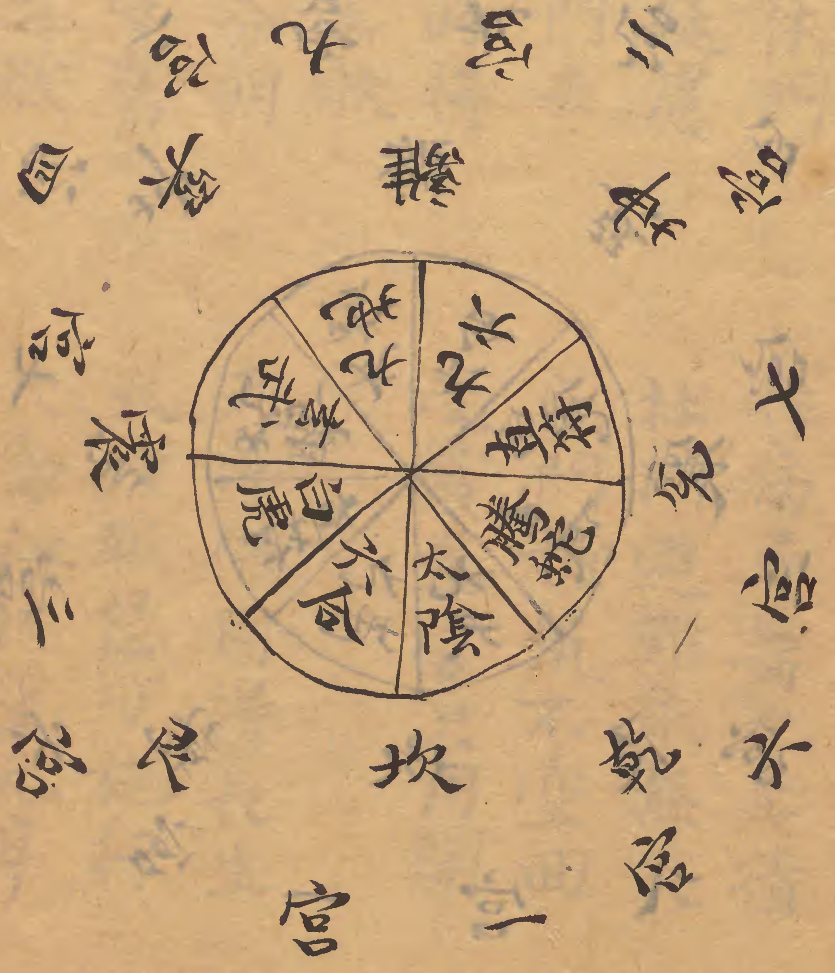 九宮
離
二宮
坤
七宮
兌
六宮
乾
一宮
坎
宮
艮
三宮
震
四宮
巽
九天
直符
騰蛇
太陰
六合
白虎
玄武
九地